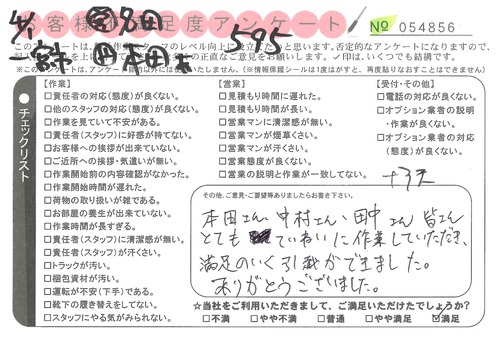 お客様の満足度アンケート
№ 054856
4/1
595
このアンケートは、
作業スタッフのレベル向上に
と思います。否定的なアンケートになりますので、
の正直なご意見をお願いします。✓印は、いくつでも結構です。
(※情報保護シールは1度はがすと、再度貼りなおすことはできません)
チェックリスト
【作業】
□責任者の対応(態度)が良くない。
□他のスタッフの対応(態度)が良くない。
□作業を見ていて不安がある。
□責任者(スタッフ)に好感が持てない。
□お客様への挨拶が出来ていない。
□ご近所への挨拶・気遣いが無い。
□作業開始前の内容確認がなかった。
□作業開始時間が遅れた。
□荷物の取り扱いが雑である。
□お部屋の養生が出来ていない。
□作業時間が長すぎる。
□責任者(スタッフ)に清潔感が無い。
□責任者(スタッフ)が汗くさい。
□トラックが汚い。
□梱包資材が汚い。
□運転が不安(下手)である。
□靴下の履き替えをしてない。
□スタッフにやる気がみられない。
【営業】
□見積もり時間に遅れた。
□見積もり時間が長い。
□営業マンに清潔感が無い。
□営業マンが煙草くさい。
□営業マンが汗くさい。
□営業態度が良くない。
□営業の説明と作業が一致してない。
【受付・その他】
□電話の対応が良くない。
□オプション業者の説明
・作業が良くない。
□オプション業者の対応
(態度)が良くない。
その他、ご意見・ご要望等ありましたらお書き下さい。
本田さん 中村さん、田中さん 皆さん
とても ていねいに作業していただき、
満足のいく引越ができました。
ありがとうございました。
☆当社をご利用いただきまして、ご満足いただけたでしょうか?
□不満 □やや不満 □普通 □やや満足 ☑満足